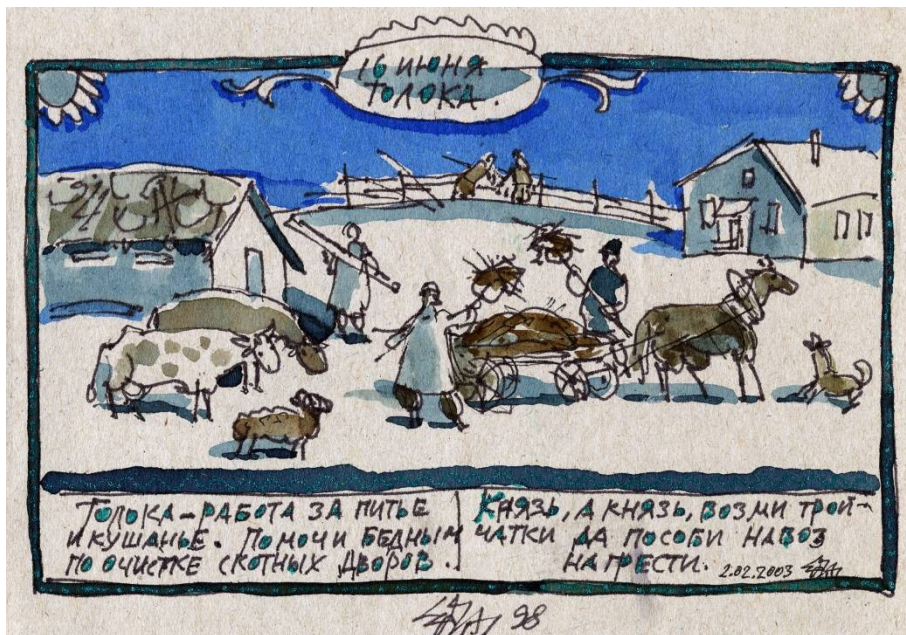 16 ИЮНЯ
ТОЛОКА.
ТОЛОКА – РАБОТА ЗА ПИТЬЕ
И КУШАНЬЕ. ПОМОЧИ БЕДНЫМ
ПО ОЧИСТКЕ СКОТНЫХ ДВОРОВ.
КНЯЗЬ, А КНЯЗЬ, ВОЗМИ ТРОЙ-
ЧАТКИ ДА ПОСОБИ НАВОЗ
НА ГРЕСТИ.
2.02.2003
98